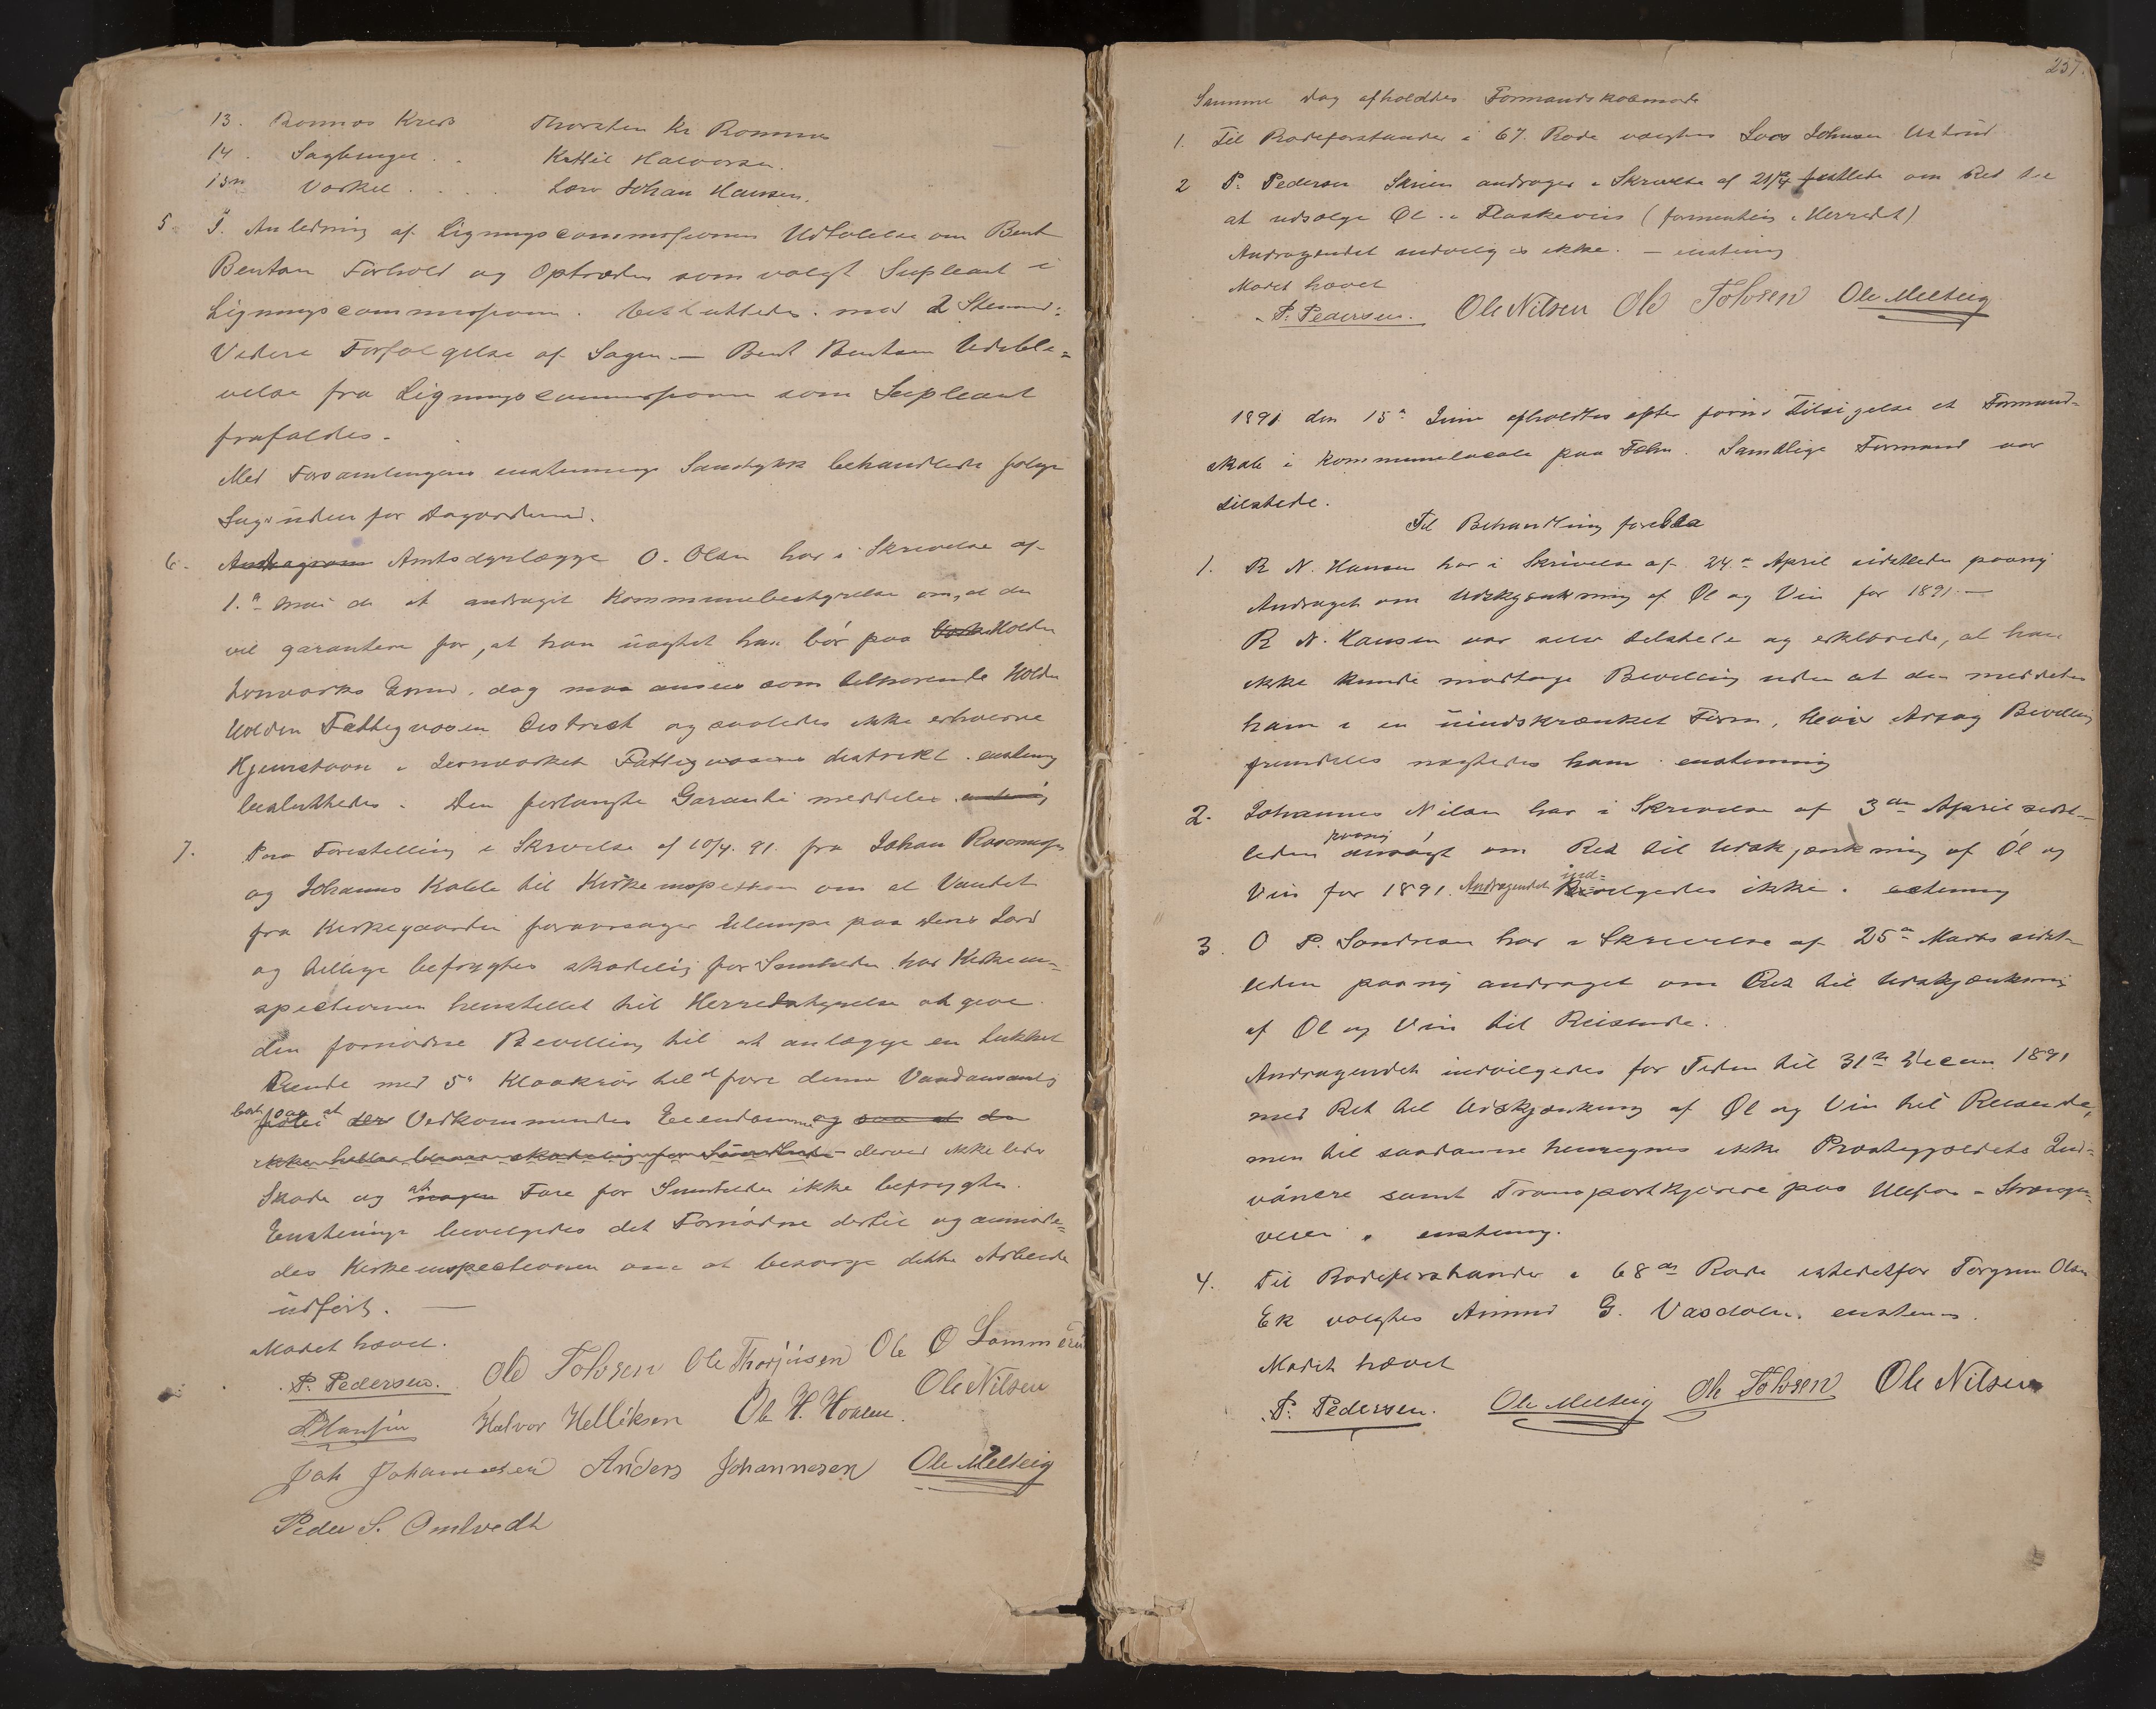 13. Romnes Kreds Thorsten Kr Romnes
14. Sagbunger . . Kittil Halvorsen
15 Vaskel . . . . Lars Johan Hansen.
5. I Anledning af Ligningscommissionens Udtalelse om Bent
Bentsen Forhold og Optræden som valgt Supleant i
Ligningscommissionen besluttedes med 2 Stemmer:
Videre Forfølgelse af Sagen — Bent Bentsen Udeble=
velse fra Ligningscommissionen som Supleant
frafaldes.
Med Forsamlingens enstemmige Samtykke behandledes følgende
Sager uden for Dagsordenen.
6. Amtsdyrlæge O. Olsen har i Skrivelse af
1. Mai d. A. andraget Kommunebestyrelse om, at den
vil garantere for, at han uagtet han bor paa Holden
Jernværks Grund, dog maa ansees som tilhørende Holden
Holden Fattigvæsen District og saaledes ikke erhverve
Hjemstavn i Jernværkets Fattigvæsens distrikt. enstemmig
besluttedes. Den forlangte Garanti meddeles
7. Paa Forestilling i Skrivelse af 10/4. 91. fra Johan Rasmussen
og Johannes Kolde til Kirkeinspektion om at Vandet
fra Kirkegaarden foraarsager Ulempe paa deres Jord
og tillige befrygtes skadelig for Sundheden har Kirkein=
spectionen henstillet til Herredstyrelse at give
den fornødne Bevilling til at anlægge en lukket
Rende med 5" Kloakrør til at føre denne Vandansamling
bort fra Vedkommendes Eiendomme og saa at den
ikke heller bliver skadelig for Sundheden derved ikke lider
Skade og at nogen Fare for Sundheden ikke befrygtes.
Enstemmige bevilgedes det Fornødne dertil og anmode=
des Kirkeinspectionen om at besørge dette Arbeide
udført. —
Mødet hævet.
P. Pedersen. Ole Tolvsen Ole Thorjusen Ole O Sommerud
Hansen Halvor Kelliksen Ole H. Hoglen. Ole Nilsen
Joh Johannesen Anders Johannesen Ole Melteig
Peder S. Omtvedt
237.
Samme Dag afholdtes Formandskabsmøde
1. Til Rodeforstander i 67. Rode valgtes Lars Johnsen Ustrud
2 P. Pedersen Skrien andrager i Skrivelse af 21/4 sidstleden om Ret til
at udsælge Øl i Flaskevis (formentlig i Herredet)
Andragendet indvilges ikke. — enstemmig
Mødet hævet
P. Pedersen. Ole Nilsen Ole Tolvsen Ole Melteig
1891 den 15 Juni afholdtes efter foreg. Tilsigelse et Formand=
skab i Kommunelocale paa Fehn. Samtlige Formænd var
tilstede.
Til Behandling forelaa
1. R N. Hansen har i Skrivelse af 24. April sidstleden paany
Andraget om Udskjænkning af Øl og Vin for 1891. —
R N. Hansen var selv tilstede og erklærede, at han
ikke kunde modtage Bevilling uden at den meddeltes
ham i en uindskrænket Form, Hvis Aarsag Bevilling
fremdeles nægtedes ham. enstemmig
2. Johannes Nilsen har i Skrivelse af 3die April sidst=
leden paany ansøgt om Ret til Udskjænkning af Øl og
Vin for 1891. Andragendet ind=vilgedes ikke. enstemmig
3. O P. Sondresen har i Skrivelse af 25 Marts sidst=
leden paany andraget om Ret til Udskjænkning
af Øl og Vin til Reisende.
Andragendet indvilgedes for Tiden til 31te Decem 1891
med Ret til Udskjænkning af Øl og Vin til Reisende,
men til saadanne henregnes ikke Præstegjældets Ind=
vånere samt Transportkjørere paa Ulefos - Strengen=
veien. enstemmig.
4. Til Rodeforstander i 68de Rode istedetfor Torgrim Olsen
Ek valgtes Amund G. Vasdalen. enstem
Mødet hævet
P. Pedersen. Ole Melteig Ole Tolvsen Ole Nilsen